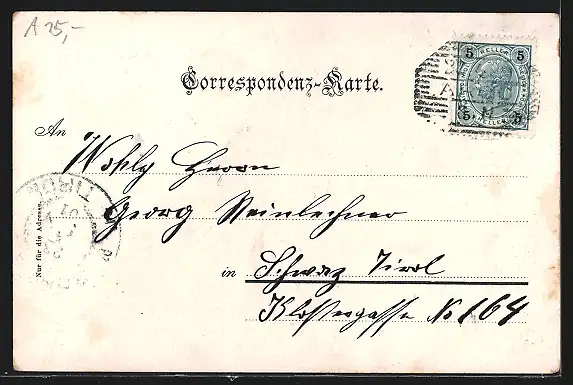 A 25,-
Correspondenz-Karte.
5 HELLER 5
5 HELLER 5
An
Wohlg Herrn
Georg Weinlechner
Nur für die Adresse.
TIROL
in Schwaz Tirol
Klostergasse No 164